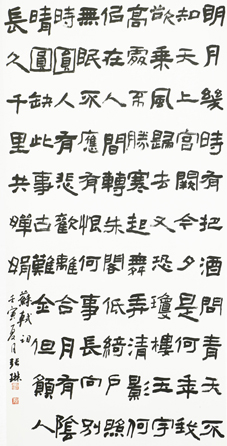 明月幾時有把酒問青天不
知天上宮闕今夕是何年我
欲乘風歸去又恐瓊樓玉宇
高處不勝寒起舞弄清影何
似在人間轉朱閣低綺戶照
無眠不應有恨何事長向別
時圓人有悲歡離合月有陰
晴圓缺此事古難全但願人
長久千里共嬋娟
蘇軾詞
壬寅夏月张琳